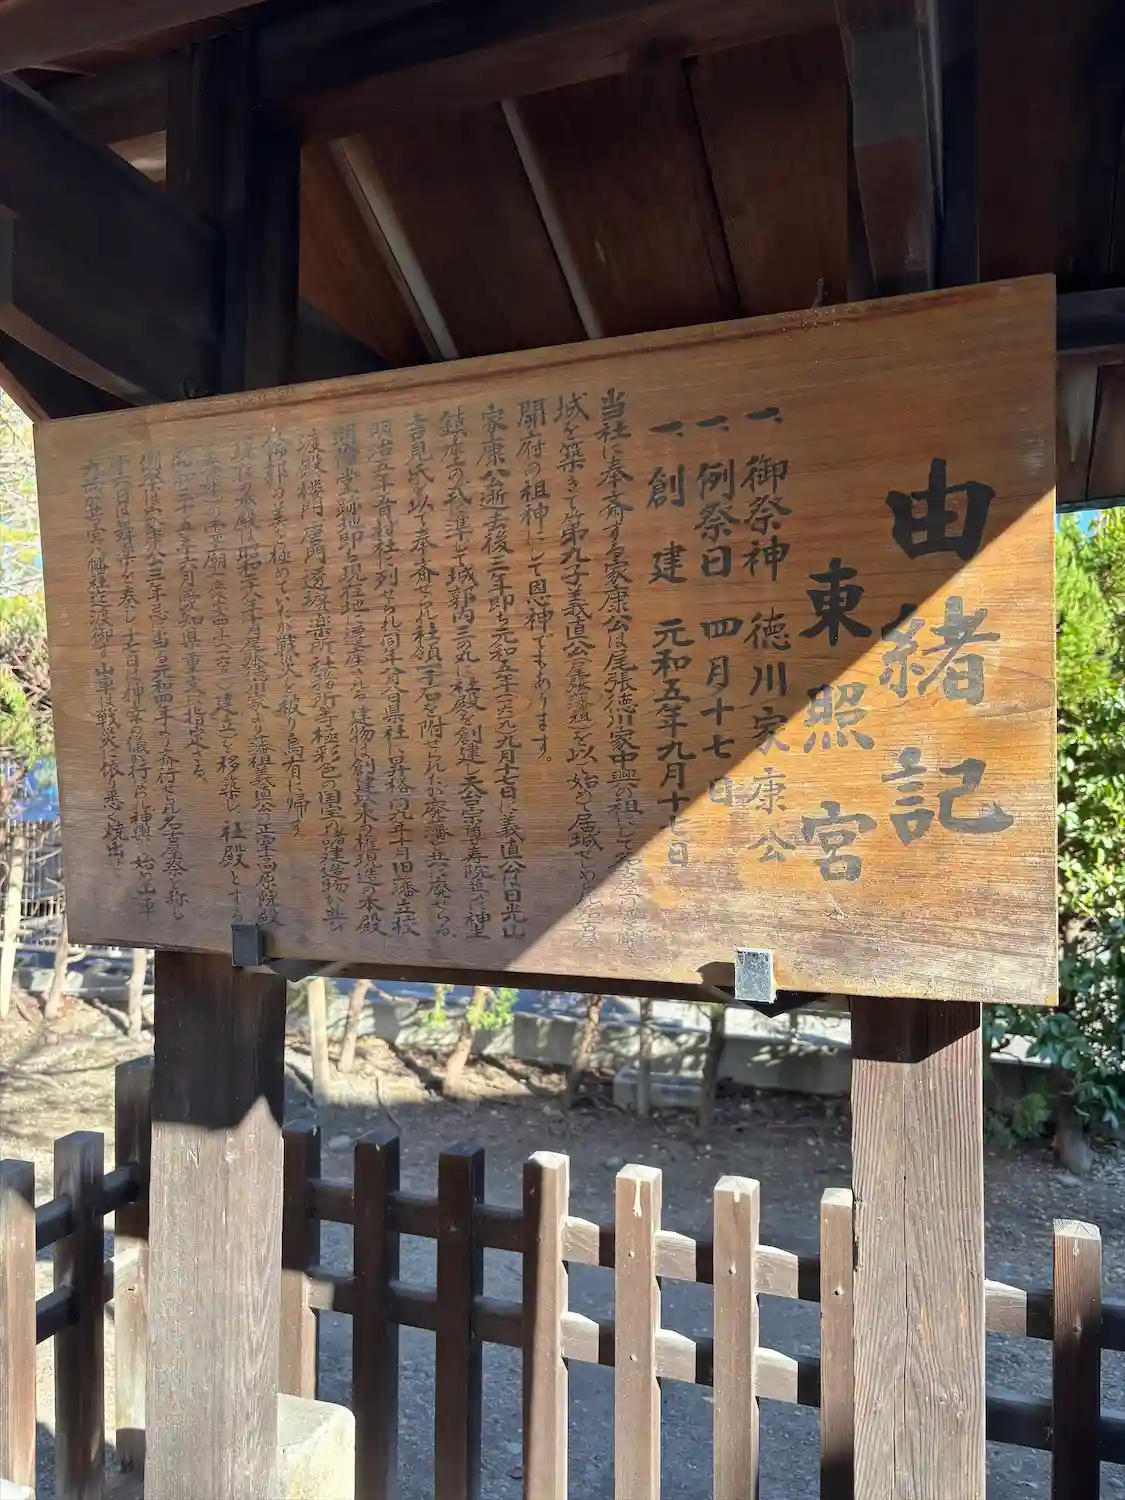 由緒記
東照宮
一、御祭神 徳川家康公
一、例祭日 四月十七日
一、創建 元和五年九月十七日
当社に奉斎する家康公は尾張徳川家中興の祖にして
城を築きて第九子義直公(尾張藩祖)を以て始めて居城せしめ
開府の祖神にして恩神でもあります。
家康公逝去後三年即ち元和五年(一六一九)九月十七日に義直公は日光山
鎮座の式に準じて城郭内三の丸に社殿を創建し天台宗
吉見氏を以て奉斎せられ社領一千石を附せられたが廃藩と共に廃せらる、
明治五年 村社に列せられ同 年 県社に昇格同九年 旧藩立校
明倫堂跡地即ち現在地に遷座さる 建物は創建以来の権現造の本殿
渡殿楼門唐門透塀楽所 等極彩色の国宝 建造物が共に
輪郭の美を極めていたが戦火を被り烏有に帰す
現在の本殿は昭和二十八年 尾張徳川家より藩祖義直公の正室高原院殿
の霊廟(慶安四年 建立)を移築し社殿とする
昭和三十五年六月愛知県重文に指定さる。
例祭は家康公三年忌に当る元和四年より斎行せられ名古屋祭と称し
十六日は舞楽を奏し十七日は神幸の儀を行ひ神輿を始め山車